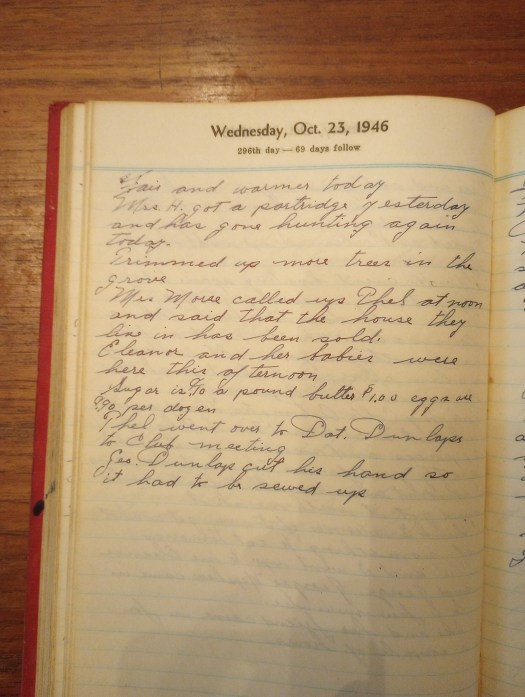 Wednesday, Oct. 23, 1946
296th day — 69 days follow
Fair and warmer today
Mrs. H. got a partridge yesterday
and has gone hunting again
today.
Trimmed up more trees in the
grove
Mrs Morse called up Thel at noon
and said that the house they
live in has been sold.
Eleanor and her babies were
here this afternoon
Sugar is a pound butter $1.00 eggs are
.90 per dozen
Thel went over to Dot. Dunlaps
to Club meeting
Geo. Dunlap cut his hand so
it had to be sewed up